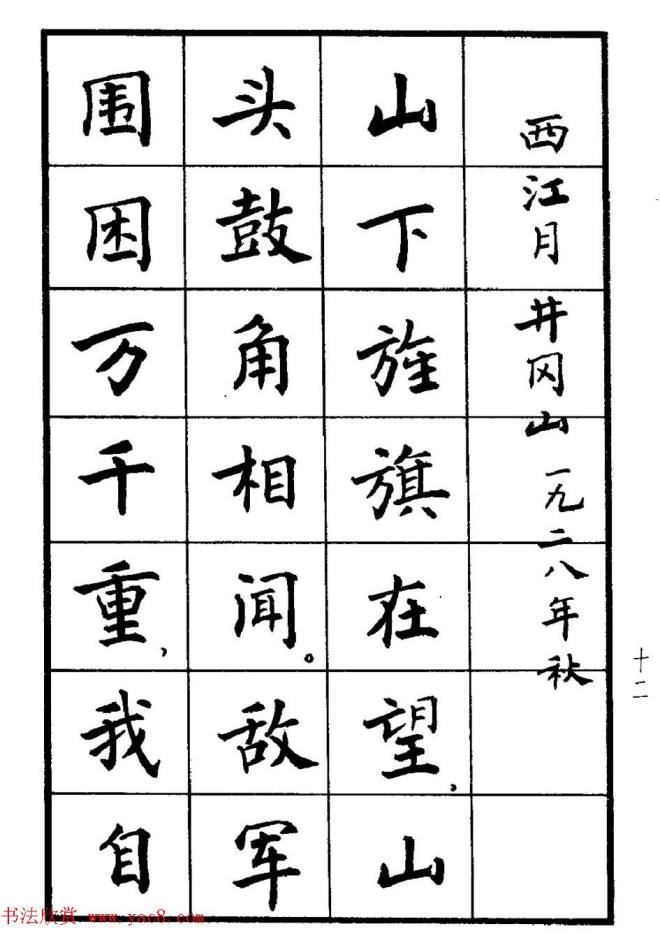 西江月 井冈山 一九二八年秋
山下旌旗在望，山
头鼓角相闻。敌军
围困万千重，我自
十二
书法欣赏 www.yac8.com